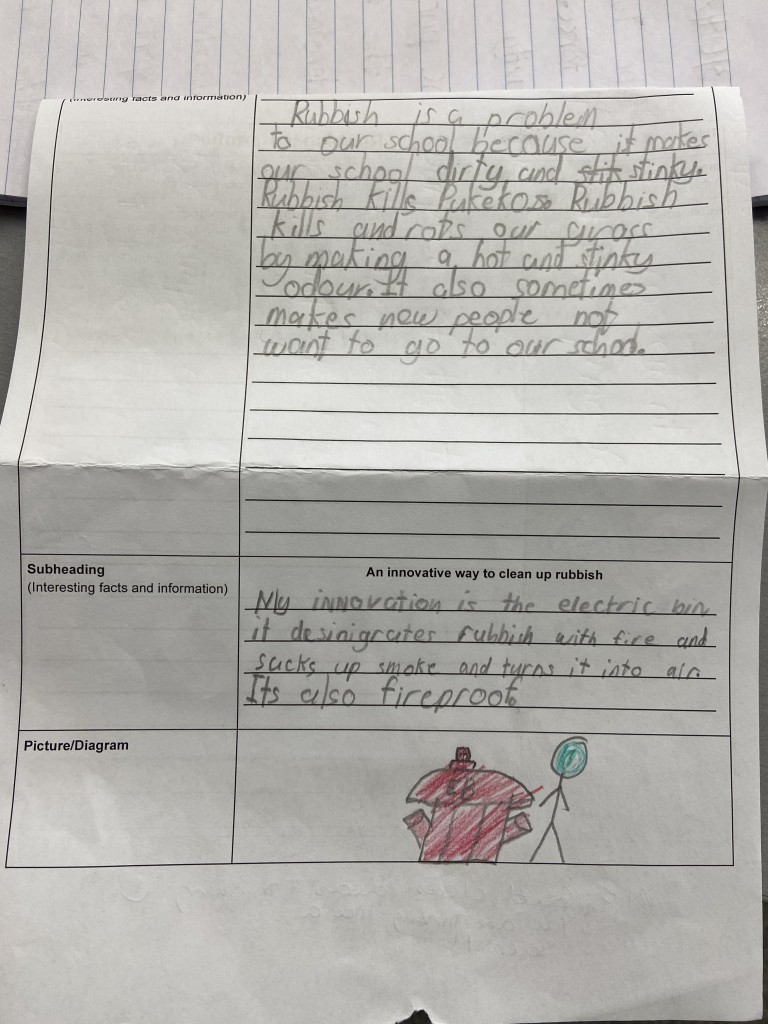 (Interesting facts and information)
Rubbish is a problem
to our school because it makes
our school dirty and stik stinky.
Rubbish kills Pukekos. Rubbish
kills and rots our grass
by making a hot and stinky
odour. It also sometimes
makes new people not
want to go to our school.
Subheading
(Interesting facts and information)
An innovative way to clean up rubbish
My innovation is the electric bin
it desinigrates rubbish with fire and
sucks up smoke and turns it into air.
Its also fireproof.
Picture/Diagram